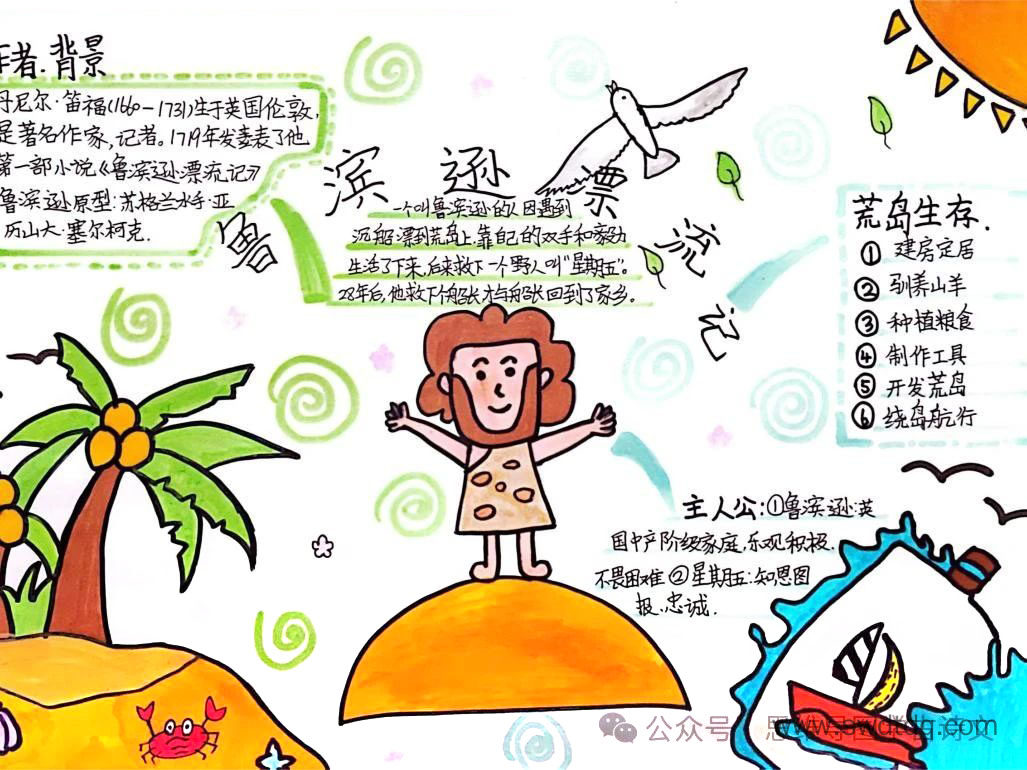 作者.背景
丹尼尔·笛福(1660-1731)生于英国伦敦,
是著名作家,记者。1719年发表了他
第一部小说《鲁滨逊漂流记》
鲁滨逊原型:苏格兰水手·亚
历山大·塞尔柯克.
鲁滨逊漂流记
一个叫鲁滨逊的人因遇到
沉船漂到荒岛上,靠自己的双手和
生活了下来,后来救下一个野人叫"星期五"。
28年后,他救下个船长才与船长回到了家乡。
荒岛生存.
① 建房定居
② 驯养山羊
③ 种植粮食
④ 制作工具
⑤ 开发荒岛
⑥ 绕岛航行
主人公:①鲁滨逊:英
国中产阶级家庭,乐观积极,
不畏困难②星期五:知恩图
报.忠诚.
公众号